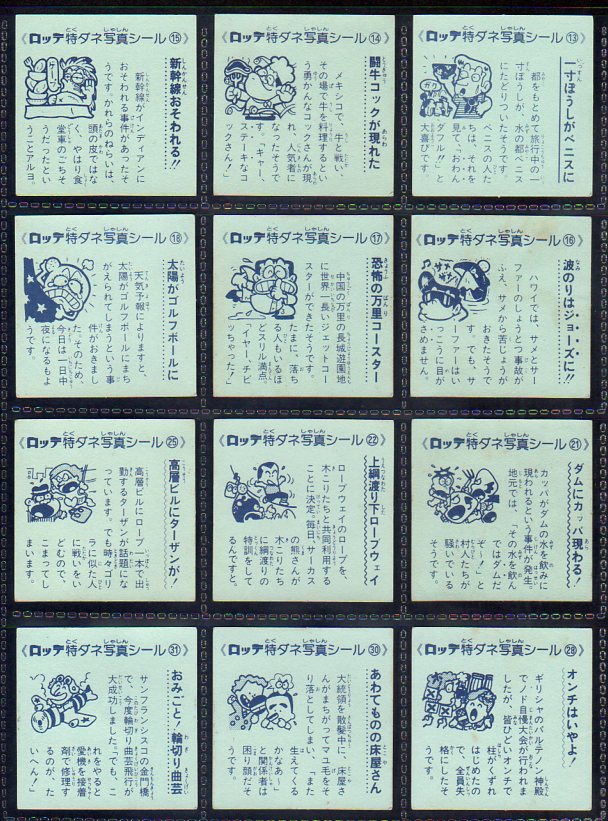 《ロッテ特ダネ写真シール⑬》
一寸ぼうしがベニスに
都をもとめて旅行中の一
寸ぼうしが、水の都ベニス
にたどりついたそうです。
ベニスの人た
ちは、それを
見て、「おわん
ダフル!!」と
大喜びです。
《ロッテ特ダネ写真シール⑭》
闘牛コックが現れた
メキシコで、牛と戦い、
その場で牛を料理するとい
う勇かんなコックさんが現
れ、人気者に
なったそうで
す。「キャー、
ステーキなコ
ックさん!」
《ロッテ特ダネ写真シール⑮》
新幹線おそわれる!!
新幹線がインディアンに
おそわれる事件があったそ
うです。かれらのねらいは、
頭の皮ではな
く、やはり食
堂車のごちそ
うだったとい
うことアルヨ。
《ロッテ特ダネ写真シール⑯》
波のりはジョーズに!!
ハワイでは、サメとサー
ファーのしょうとつ事故が
ふえ、サメから苦じょうが
おきたそうで
す。でも、サ
ーファーはい
っこうに目が
さめません。
《ロッテ特ダネ写真シール⑰》
恐怖の万里コースター
中国の万里の長城遊園地
に世界一長いジェットコー
スターができたそうです。
たまに、落ち
る人もいるほ
どスリル満点、
「イヤー、チビ
ッちゃった?」
《ロッテ特ダネ写真シール⑱》
太陽がゴルフボールに
天気予報によりますと、
太陽がゴルフボールにまち
がえられてしまうという事
件がおきまし
た。そのため
今日は一日中
夜になるもよ
うです。
《ロッテ特ダネ写真シール㉑》
ダムにカッパ現わる!
カッパがダムの水を飲みに
現われるという事件が発生。
地元では、「その水を飲ん
ではダムだ
ぞ~!」と
村人たちが
騒いでいる
そうです。
《ロッテ特ダネ写真シール㉒》
上綱渡り下ロープウェイ
ロープウェイのロープを、
木こりたちと共同利用する
ことに決定。毎日、サーカス
の熊さんが
木こりたち
に綱渡りの
特訓をして
るんですと。
《ロッテ特ダネ写真シール㉕》
高層ビルにターザンが!
高層ビルにロープ一本で出
動するターザンが話題にな
っています。でも時々ゴリ
ラに似た人
に戦いをい
どむので、
こまってし
まいます。
《ロッテ特ダネ写真シール㉘》
オンチはいやよ!
ギリシャのパルテノン神殿
でノド自慢大会が行われま
したが、皆ひどいオンチで
柱がくずれ
はじめたの
で、全員失
格にしたそ
うです。
《ロッテ特ダネ写真シール㉚》
あわてものの床屋さん
大統領を散髪中に、床屋さ
んがまちがってマユ毛をそ
り落としてしまい、「また
生えてくる
かなあ~」
と関係者は
困り顔だそ
うです。
《ロッテ特ダネ写真シール㉛》
おみごと!輪切り曲芸
サンフランシスコの金門橋
で、今度輪切り曲芸飛行が
大成功しました。「でも、こ
れをやると
愛機を接着
剤で修理す
るのが、た
いへん!」